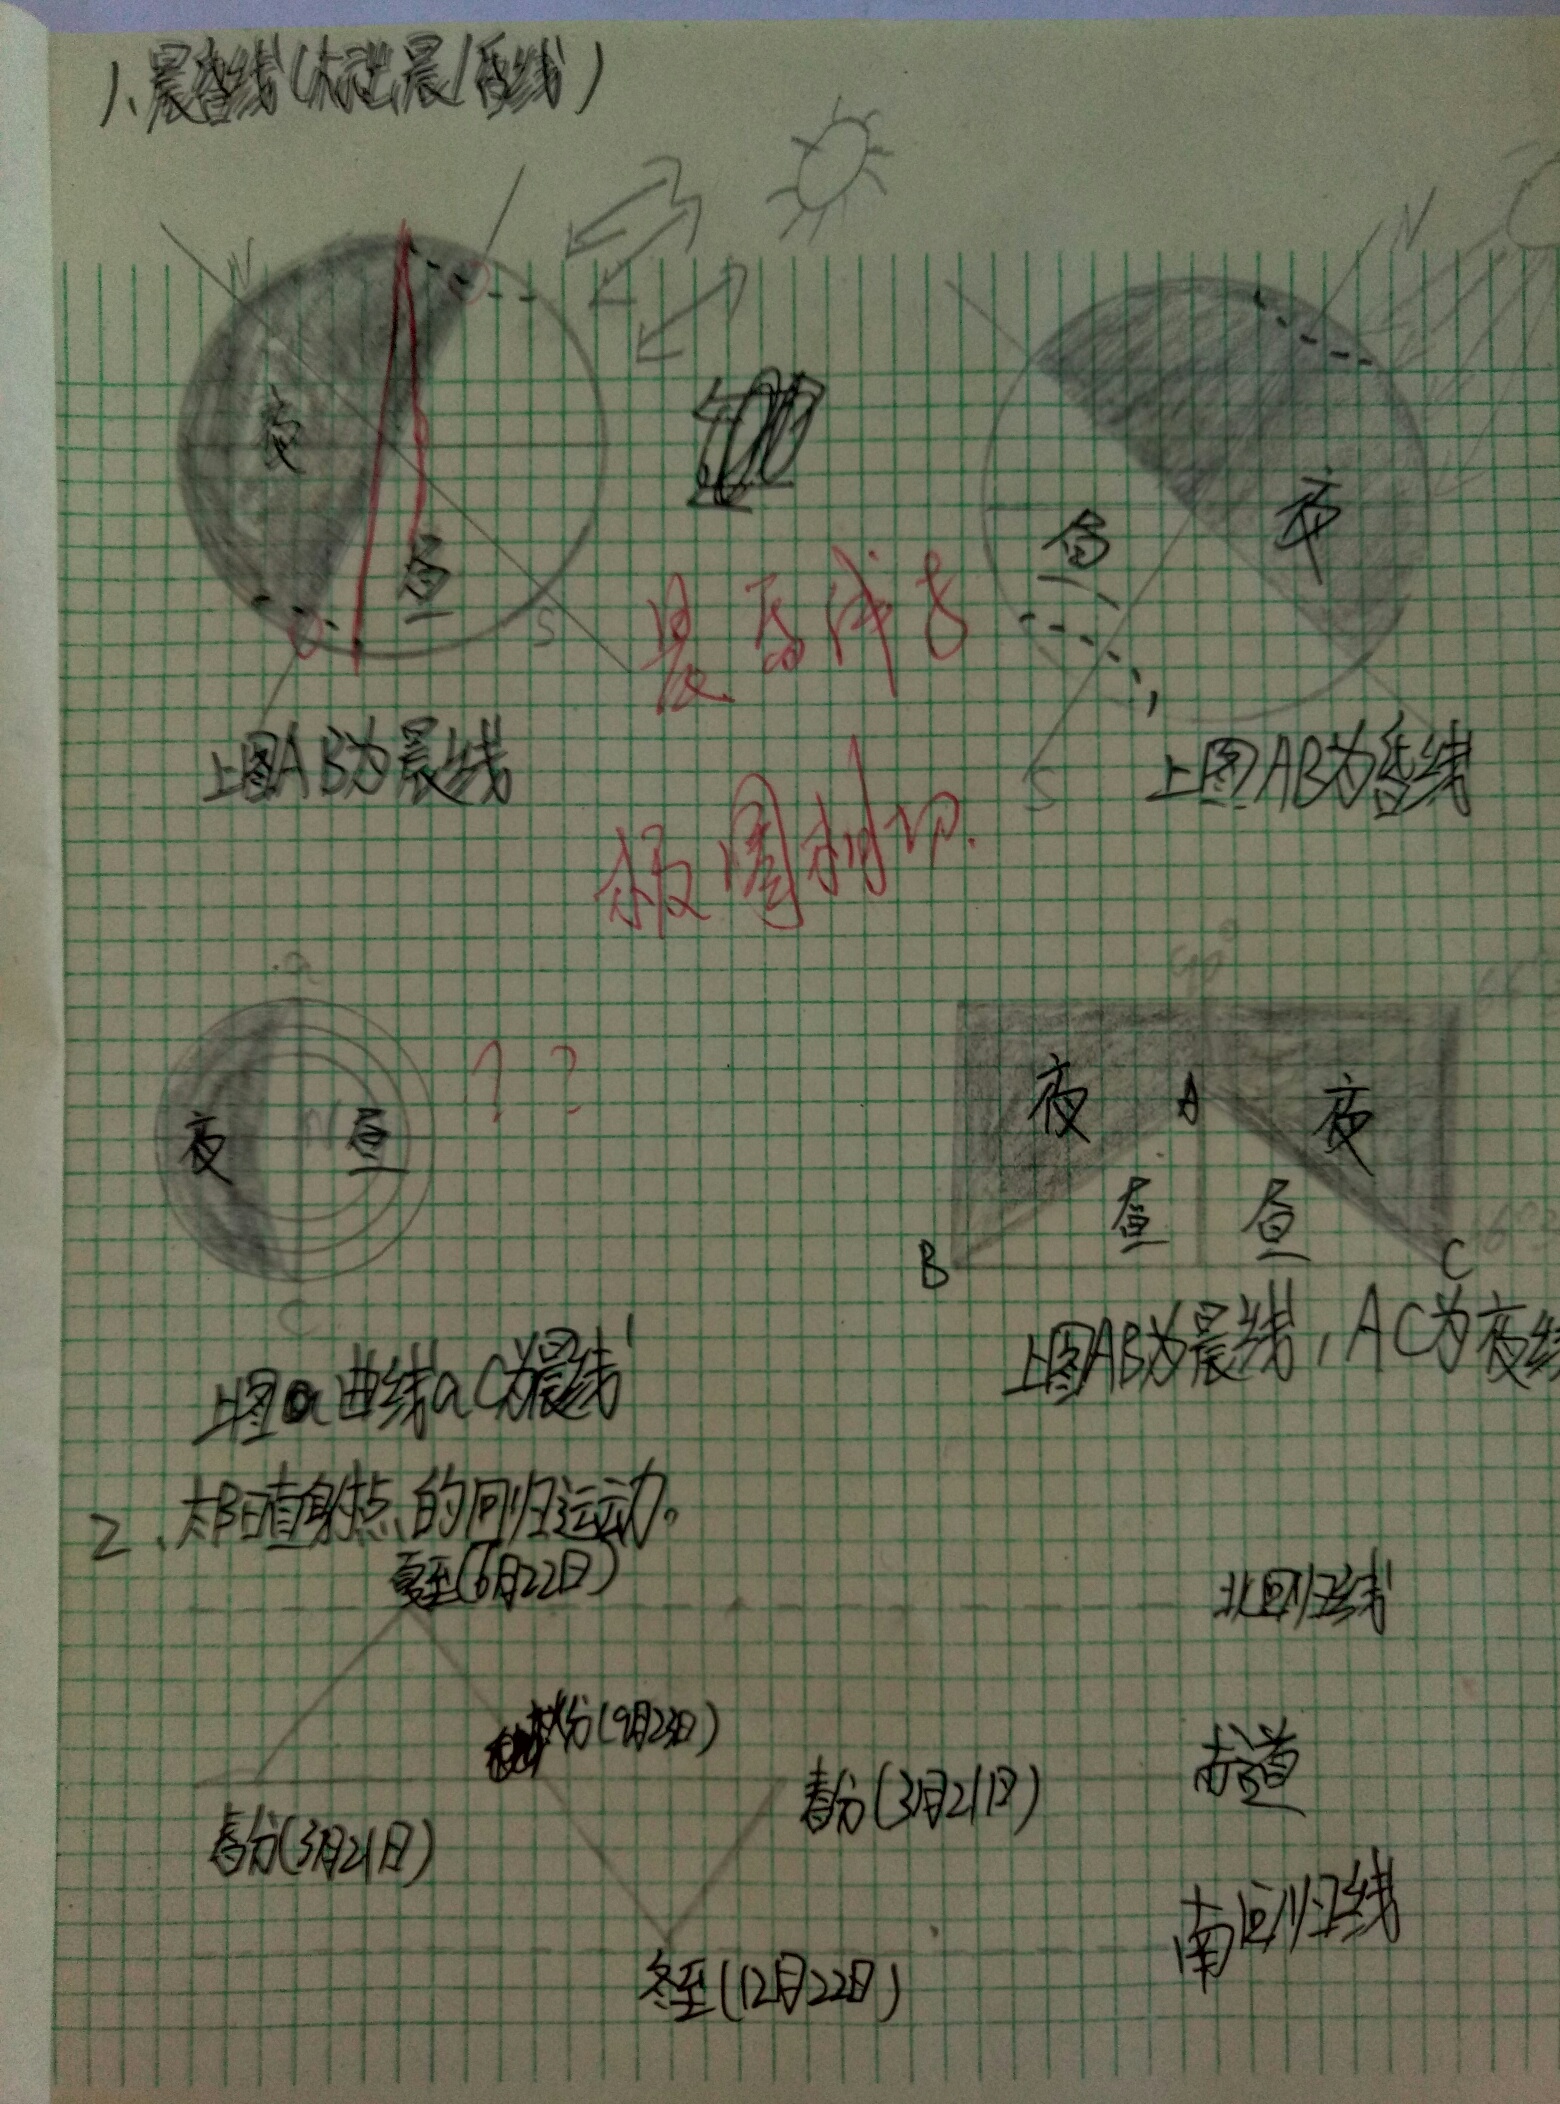 1、晨昏线(标出晨/昏线)
N
N
夜
昼
S
昼
夜
S
晨昏线与
极圈相切.
上图AB为晨线
上图AB为昏线
a
90°
夜
N
昼
? ?
C
夜
A
夜
昼
昼
B
C
上图曲线aC为晨线
上图AB为晨线,AC为夜线
2、太阳直射点的回归运动。
夏至(6月22日)
北回归线
秋分(9月23日)
赤道
春分(3月21日)
春分(3月21日)
南回归线
冬至(12月22日)